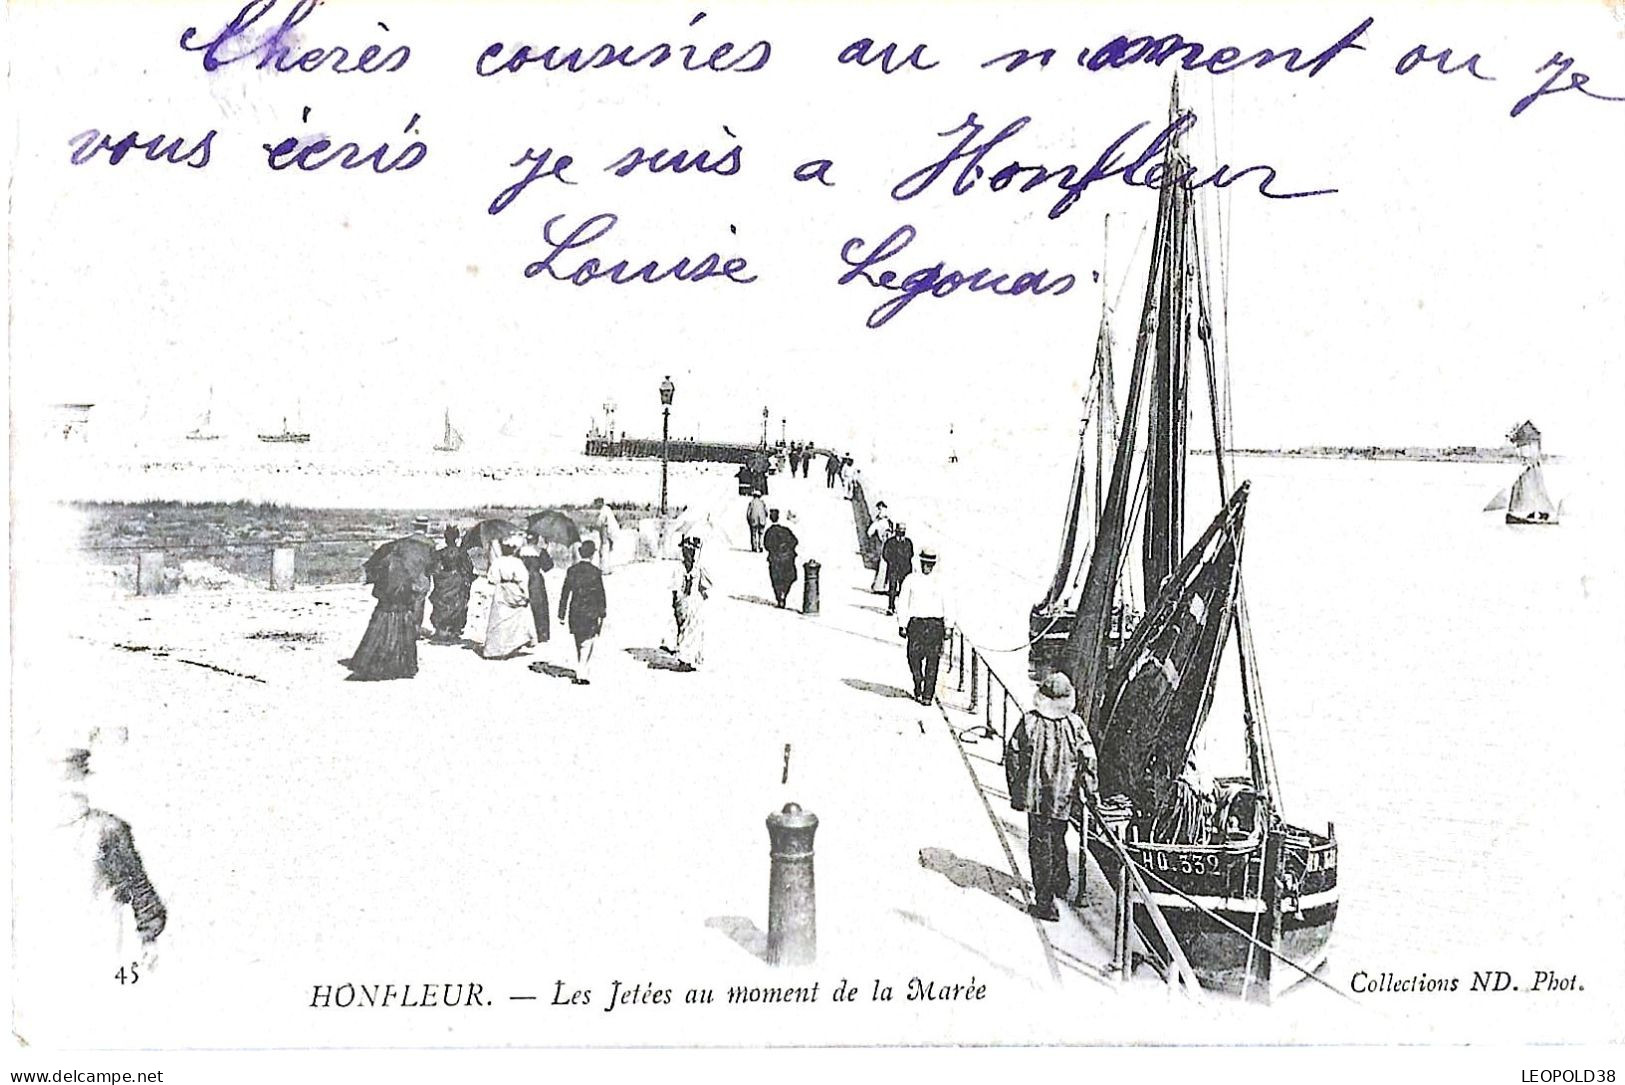 Cherès cousinés au moment ou je
vous écris je suis a Honfleur
Louise Legouas
HO.332
45
HONFLEUR. — Les Jetées au moment de la Marée
Collections ND. Phot.
45.delcampe.net
LEOPOLD38